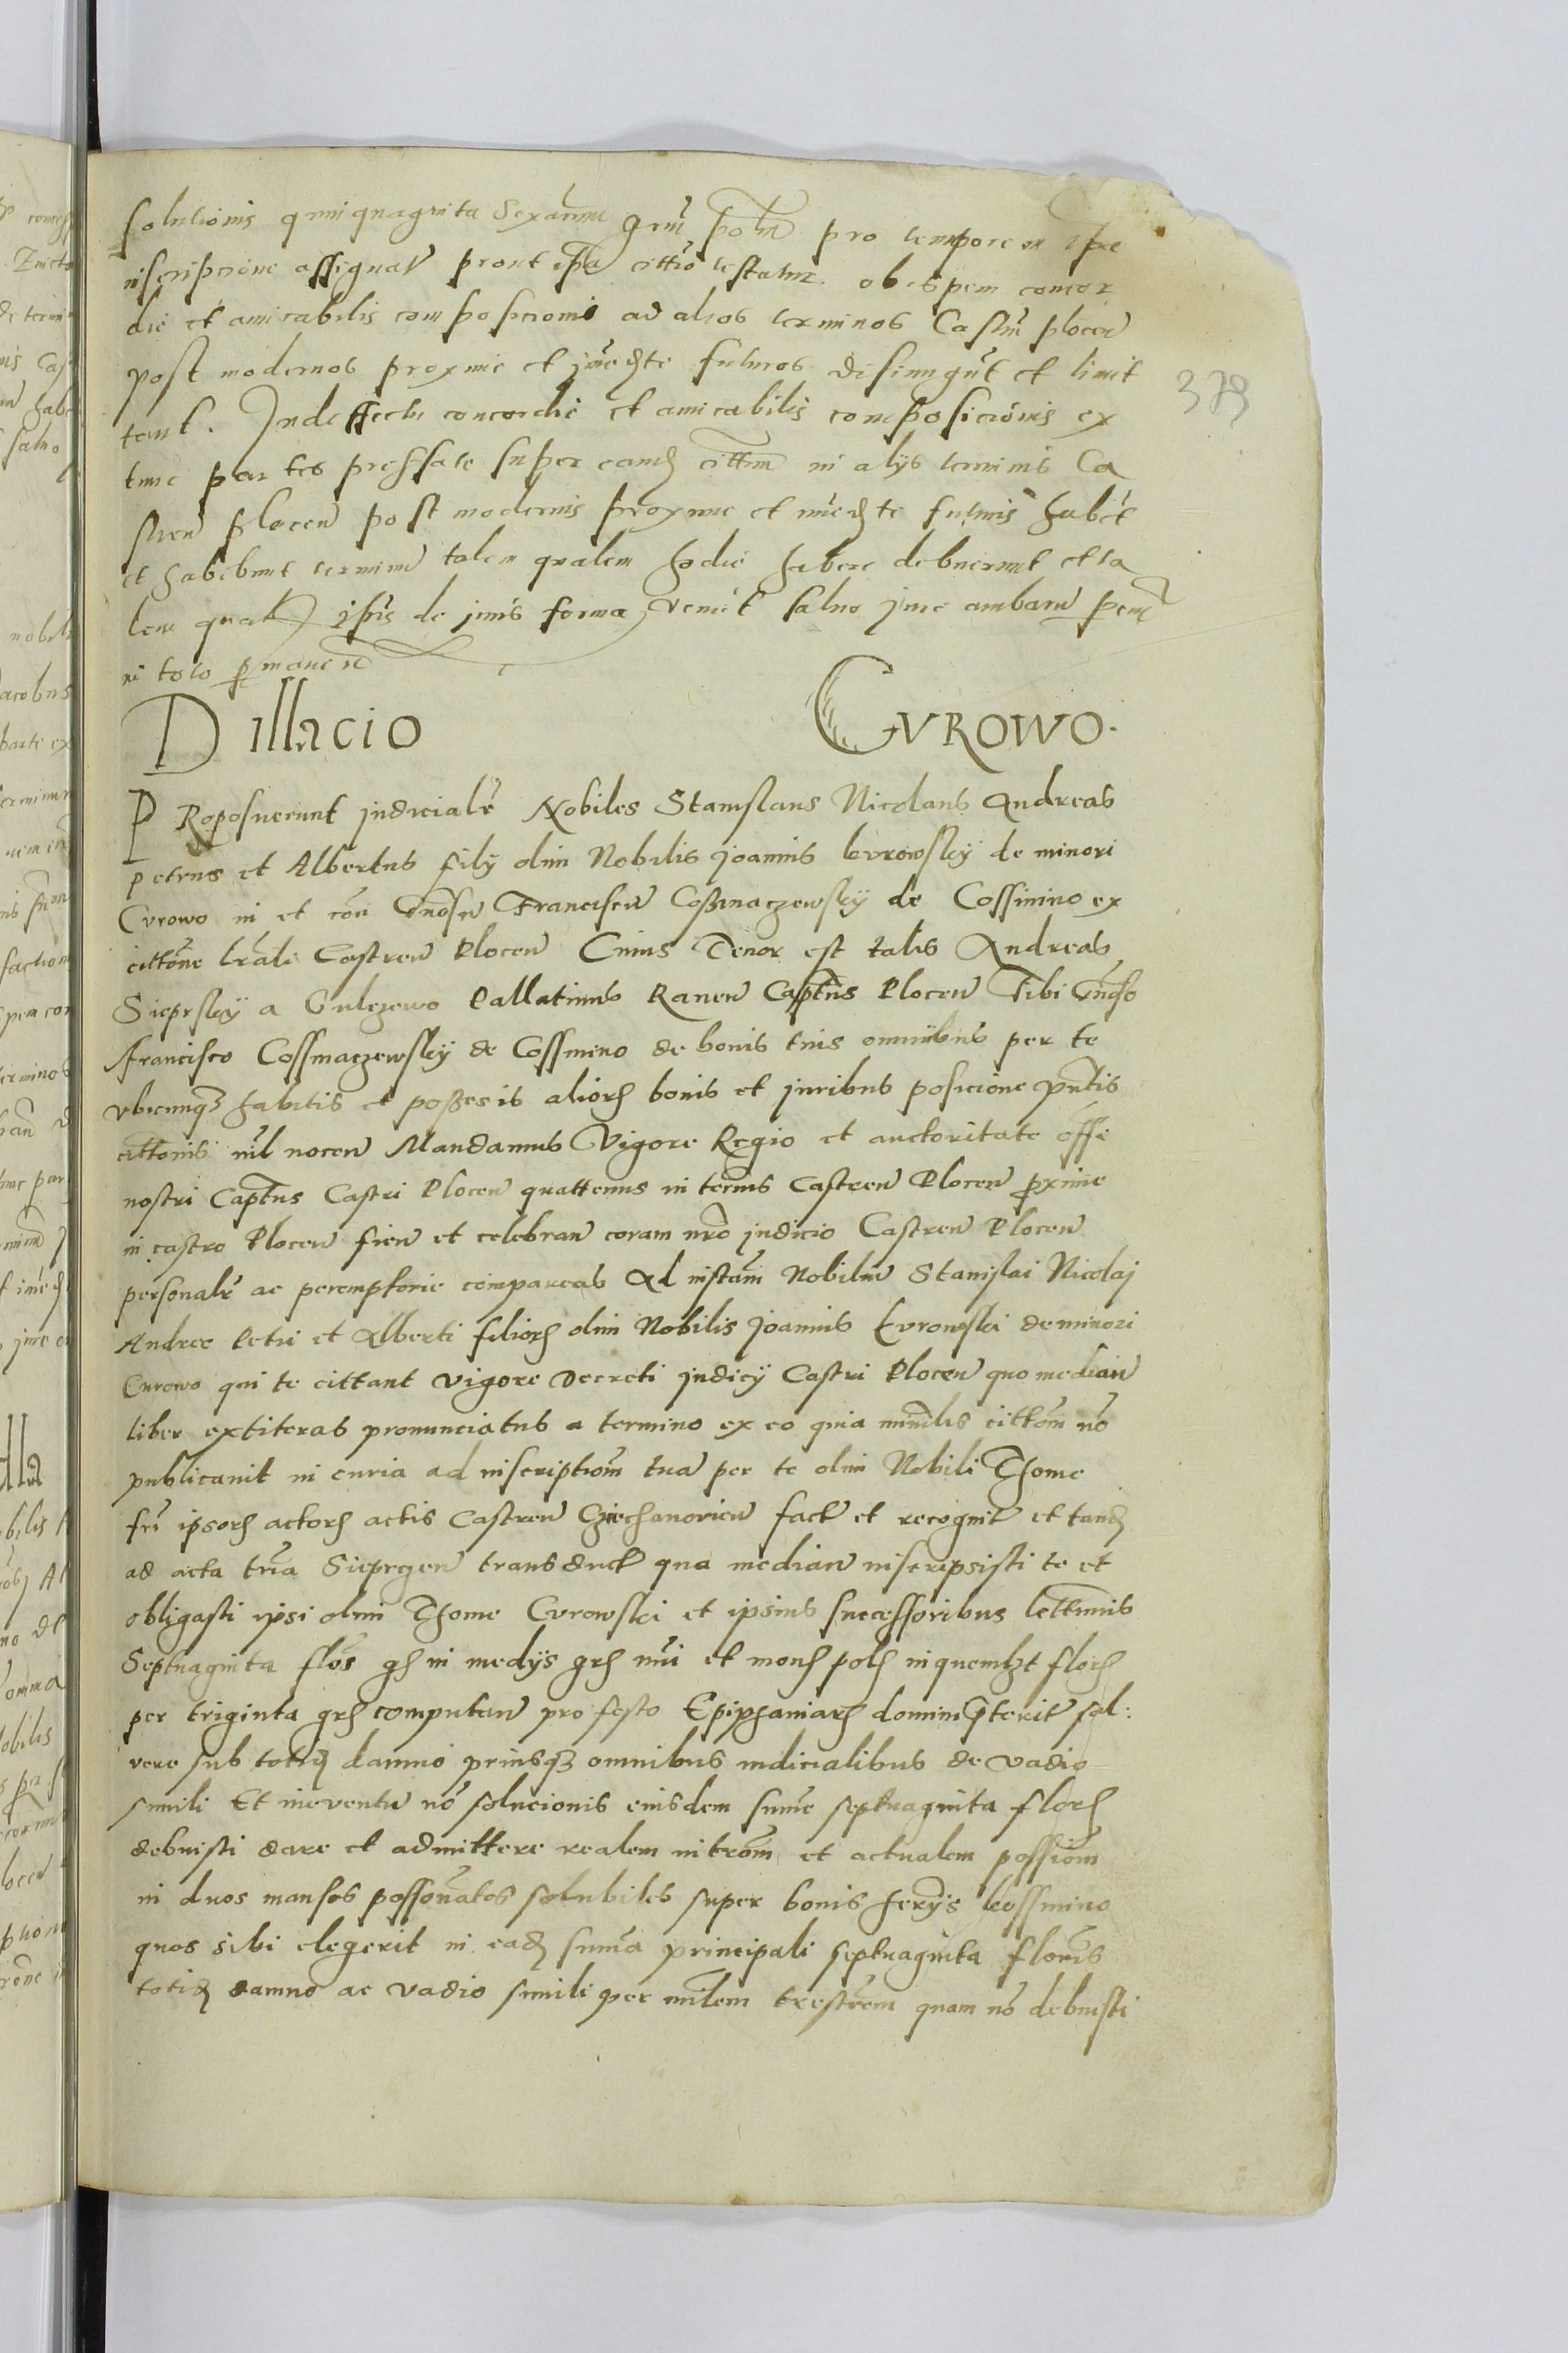 solutionis quinquaginta sexaram grm polm pro tempore in ipse
inscripcione assignat prout ipa cittio testatur. ob spem concor
die et amicabilis composicionis ad alios terminos Castrn plocen
post modernos proxime et imediate futuros disiungut et limit
tant. In deffectu concordie et amicabilis composicionis ex
tunc partes preffate super eand cittem in alys terminis Ca
stren plocen post modernis proxime et imediate futuris habet
et habebunt terminu talem qualem hodie habere debuerunt et ta
lem qual ipis de juris forma venit salvo jure ambaru
in toto permanen
378
Dillacio Curowo.
Proposuerunt judicialr Nobiles Stanislaus Nicolaus Andreas
petrus et Albertus fily olim Nobilis Joannis kvrowsky de minori
Cvrowo in et con Gnosu Franciscu Coßmaczewsky de Cossmino ex
cittone lrali Castren Plocen Cuius Tenor est talis Andreas
Sieprsky a Gulczewo Pallatinus Raven Captus Plocen Tibi Gnoso
Francisco Cossmaczewsky de Cossmino de bonis tuis omnibus per te
vbicunq habitis et poßesis aliorum bonis et juribus posicione pntis
cittonis nil nocen Mandamus Vigore Regio et auctoritate offi
nostri Captus Castri Plocen quattenus in termis Castren Plocen proxime
in castro Plocen fien et celebran coram nro judicio Castren Plocen
personalr ac peremptorie compareas Ad instam Nobiliu Stanislai Nicolaj
Andree Petri et Alberti filiorum olim Nobilis Joannis kvrowski de minori
Curowo qui te cittant vigore Decreti judicy Castri Plocen quo median
liber extiteras pronunciatus a termino ex eo quia mimlis cittom no
publicavit in curia ad inscriptiom tua per te olim Nobili Thome
fri ipsorum actorum actis Castren Cziechanovien fact et recognit et tand
ad acta tria Sieprgen transduct qua median inscripsisti te et
obligasti ipsi olim Thome Cvrowski et ipsius successoribus lettimis
Septuaginta flos gh in medys grh nui et moneh polh in quemlzt florh
per triginta grh computan pro festo Epiphaniarum domini pterit sol:
vere sub totid damno priusq omnibus indicialibus de vadio
simili Et in eventu no solucionis eiusdem sume septuaginta florh
debuisti dare et admittere realem introm et actualem possiom
in duos mansos possonatos solubiles super bonis herys kossmino
quos sibi elegerit in ead suma principali septuaginta floris
totid damno ac vadio simili per milem trestrem quam no debuisti